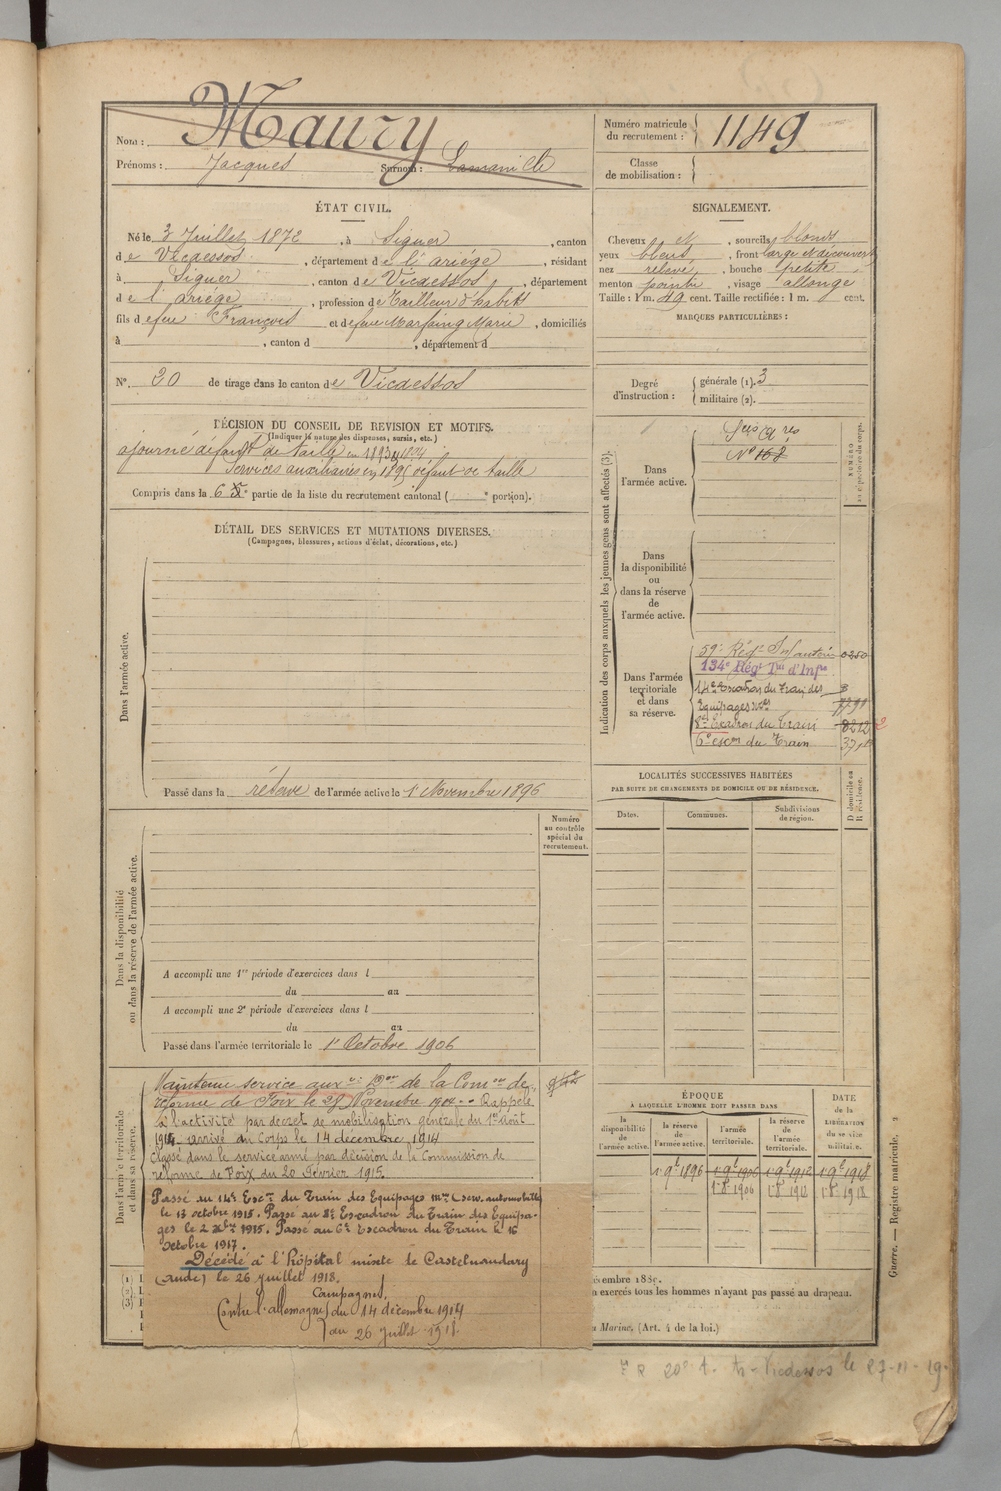 Nom : Maury
Prénoms : Jacques Surnom :
Numéro matricule du recrutement : 1149
Classe de mobilisation :
ÉTAT CIVIL.
Né le 3 Juillet 1872, à Siguer, canton
de Vicdessos, département de l'ariège, résidant
à Siguer, canton de Vicdessos, département
de l'ariége, profession de tailleur d'habits
fils de feu François et de feue Marfaing Marie, domiciliés
à , canton d , département d
N° 20 de tirage dans le canton de Vicdessos
DÉCISION DU CONSEIL DE REVISION ET MOTIFS.
(Indiquer la nature des dispenses, sursis, etc.)
ajourné défaut de taille en 1893 1894
Services auxiliaires en 1895 défaut de taille
Compris dans la 6e partie de la liste du recrutement cantonal ( e portion).
DÉTAIL DES SERVICES ET MUTATIONS DIVERSES.
(Campagnes, blessures, actions d'éclat, décorations, etc.)
Dans l'armée active.
Passé dans la réserve de l'armée active le 1er Novembre 1896
Dans la disponibilité
ou dans la réserve de l'armée active.
Numéro
au contrôle
spécial du
recrutement.
A accompli une 1re période d'exercices dans l
du au
A accompli une 2e période d'exercices dans l
du au
Passé dans l'armée territoriale le 1er Octobre 1906
Dans l'armée territoriale
et dans sa réserve.
Maintenu service auxre Don de la Comon de
réforme de Foix le 28 Novembre 1914 -- Rappelé
à l'activité par décret de mobilisation générale du 1er Août
1914. arrivé au Corps le 14 decembre 1914
Classé dans le service armé par décision de la Commission de
réforme de Foix du 20 Février 1915.
Passé au 14e Escon du Train des Equipages mres (serv. automobile)
le 13 octobre 1915. Passé au 8e Escadron du Train des Equipa-
ges le 2 xbre 1915. Passé au 6e Escadron du Train le 16
octobre 1917.
Décédé à l'Hôpital mixte de Castelnaudary
(Aude) le 26 Juillet 1918.
Campagnes.
Contre l'allemagne du 14 décembre 1914
au 26 Juillet 1918.
SIGNALEMENT.
Cheveux et, sourcils blonds
yeux bleus, front large et découvert
nez relevé, bouche petite
menton pointu, visage allongé
Taille : 1 m. 49 cent. Taille rectifiée : 1 m. cent.
MARQUES PARTICULIÈRES :
Degré d'instruction : générale (1). 3
militaire (2).
Indication des corps auxquels les jeunes gens sont affectés (3).
NUMÉRO
Dans
l'armée active.
N° 162
Dans
la disponibilité
ou
dans la réserve
de
l'armée active.
Dans l'armée
territoriale
et dans
sa réserve.
59e Régt Infanterie 0250
134e Régt Tal d'Infie
14e Escadron du Train des
Equipages mres
8e Escadron du Train 8212
6e escon du Train
LOCALITÉS SUCCESSIVES HABITÉES
PAR SUITE DE CHANGEMENTS DE DOMICILE OU DE RÉSIDENCE.
Dates. Communes. Subdivisions de région.
D domicile ou
R résidence.
ÉPOQUE
À LAQUELLE L'HOMME DOIT PASSER DANS
DATE
de la
LIBÉRATION
du service
militaire.
la disponibilité de l'armée active.
la réserve de l'armée active.
l'armée territoriale.
la réserve de l'armée territoriale.
1 9e 1896 1 9e 1906 1 9e 1912 1 9e 1918
1 8e 1906 1 8e 1912 1 8e 1918
exercés tous les hommes n'ayant pas passé au drapeau.
Marine, (Art. 4 de la loi.)
Guerre. — Registre matricule. 2
Vicdessos le 27-11-19